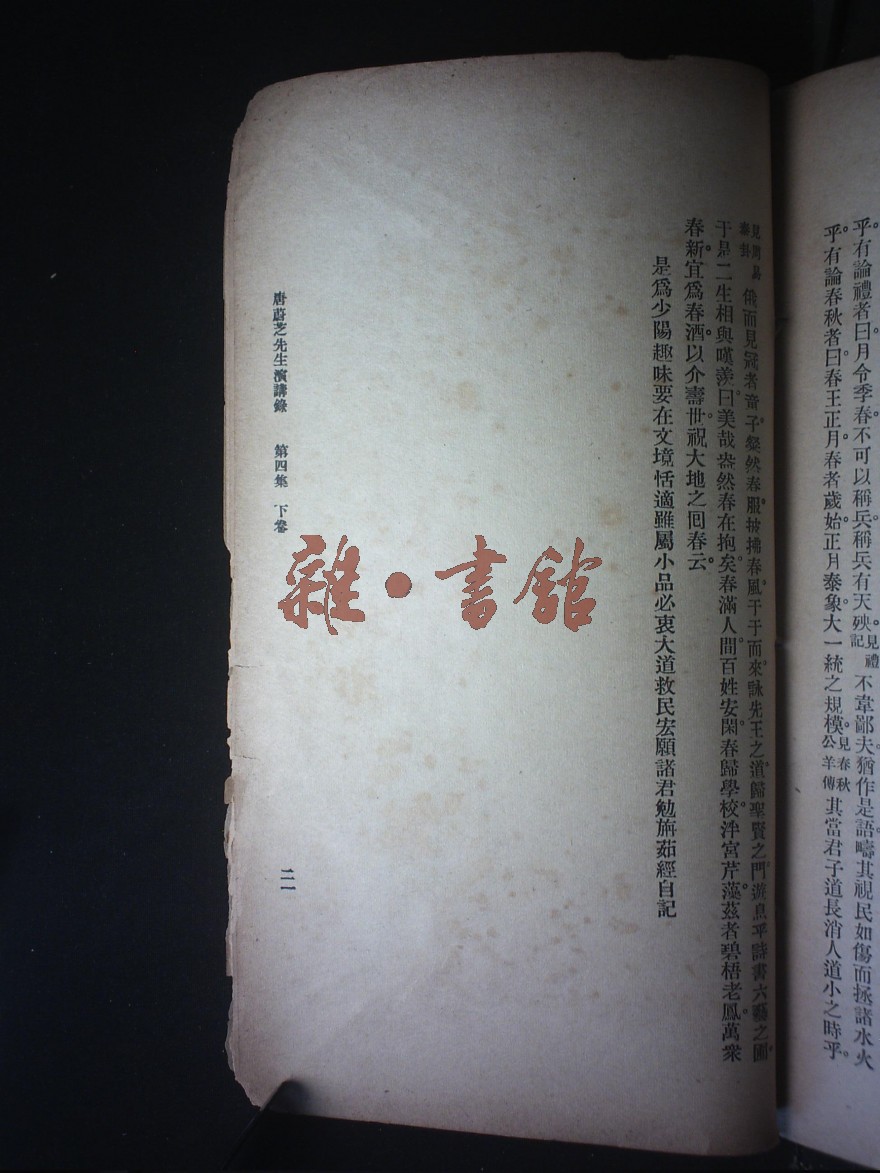 乎。有論禮者曰。月令季春。不可以稱兵。稱兵有天殃。見禮記不韋鄙夫。猶作是語。疇其視民如傷而拯諸水火
乎。有論春秋者曰。春王正月。春者歲始。正月泰象。大一統之規模。見春秋公羊傳其當君子道長消人道小之時乎。
見周易泰卦俄而見冠者童子。粲然春服。披拂春風。于于而來。詠先王之道。歸聖賢之門。遊息乎詩書六藝之圃。
于是二生相與嘆羨。曰美哉。盎然春在抱矣。春滿人間。百姓安閑。春歸學校。泮宮芹藻。茲者碧梧老鳳。萬衆
春新。宜爲春酒。以介壽世。祝大地之囘春云。
是爲少陽趣味要在文境恬適雖屬小品必衷大道救民宏願諸君勉旃茹經自記
唐蔚芝先生演講錄 第四集 下卷
二一
雜•書館